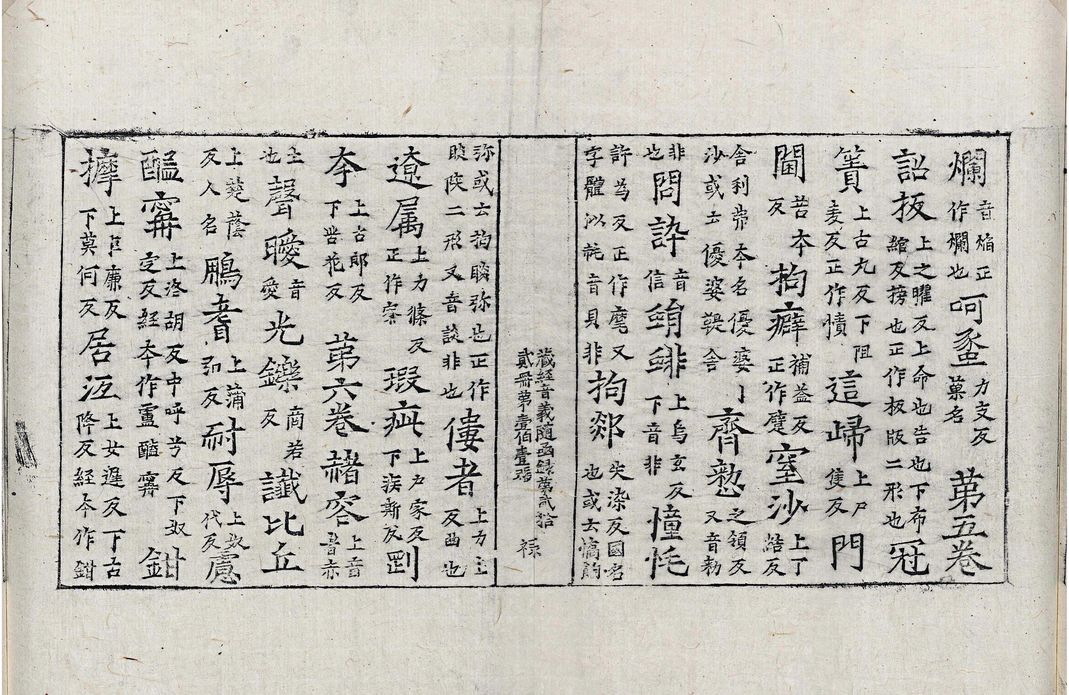 爛音焰正作爛也呵䖯力支反菓名第五卷
詔扳上之曜反上命也告也下布綰反牓也正作板版二形也冠
簀上古丸反下阻麦反正作幘這歸上尸隻反門
閫苦本反拘癖補益反正作躄窒沙上丁結反
舍利弗本名優婆〻沙或云優婆鞮舍齊愸之領反又音勑
非也問誶音信䋺緋上烏玄反下音非憧毦
許為反正作麾又字體㳄毦音貝非拘郯失染反國名也或云憍䬼
藏經音義隨函録萬貳拾貳冊第壹佰壹張 禄
弥或云拘睒弥也正作睒陝二形又音談非也僂者上力主反曲也
遼属上力條反正作寮瑕疵上戶家反下疾斯反剛
夲上古郎反下苦花反第六卷赭容上音者赤
土也聲曖音愛光鑠商若反讖比丘
上楚蔭反人名鵬耆上蒲弘反耐辱上奴代反慮
醖寗上洛胡反中呼兮反下奴定反經夲作盧醯寗鉗
㨷上巨廉反下莫何反居泜上女遲反下古降反經夲作鉗